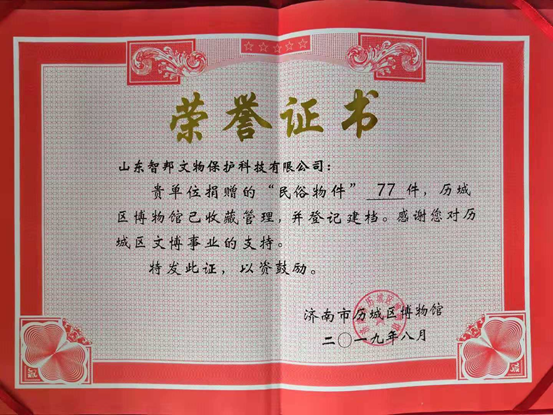 荣誉证书
山东智邦文物保护科技有限公司：
贵单位捐赠的“民俗物件” 77 件，历城
区博物馆已收藏管理，并登记建档。感谢您对历
城区文博事业的支持。
特发此证，以资鼓励。
济南市历城区博物馆
二〇一九年八月